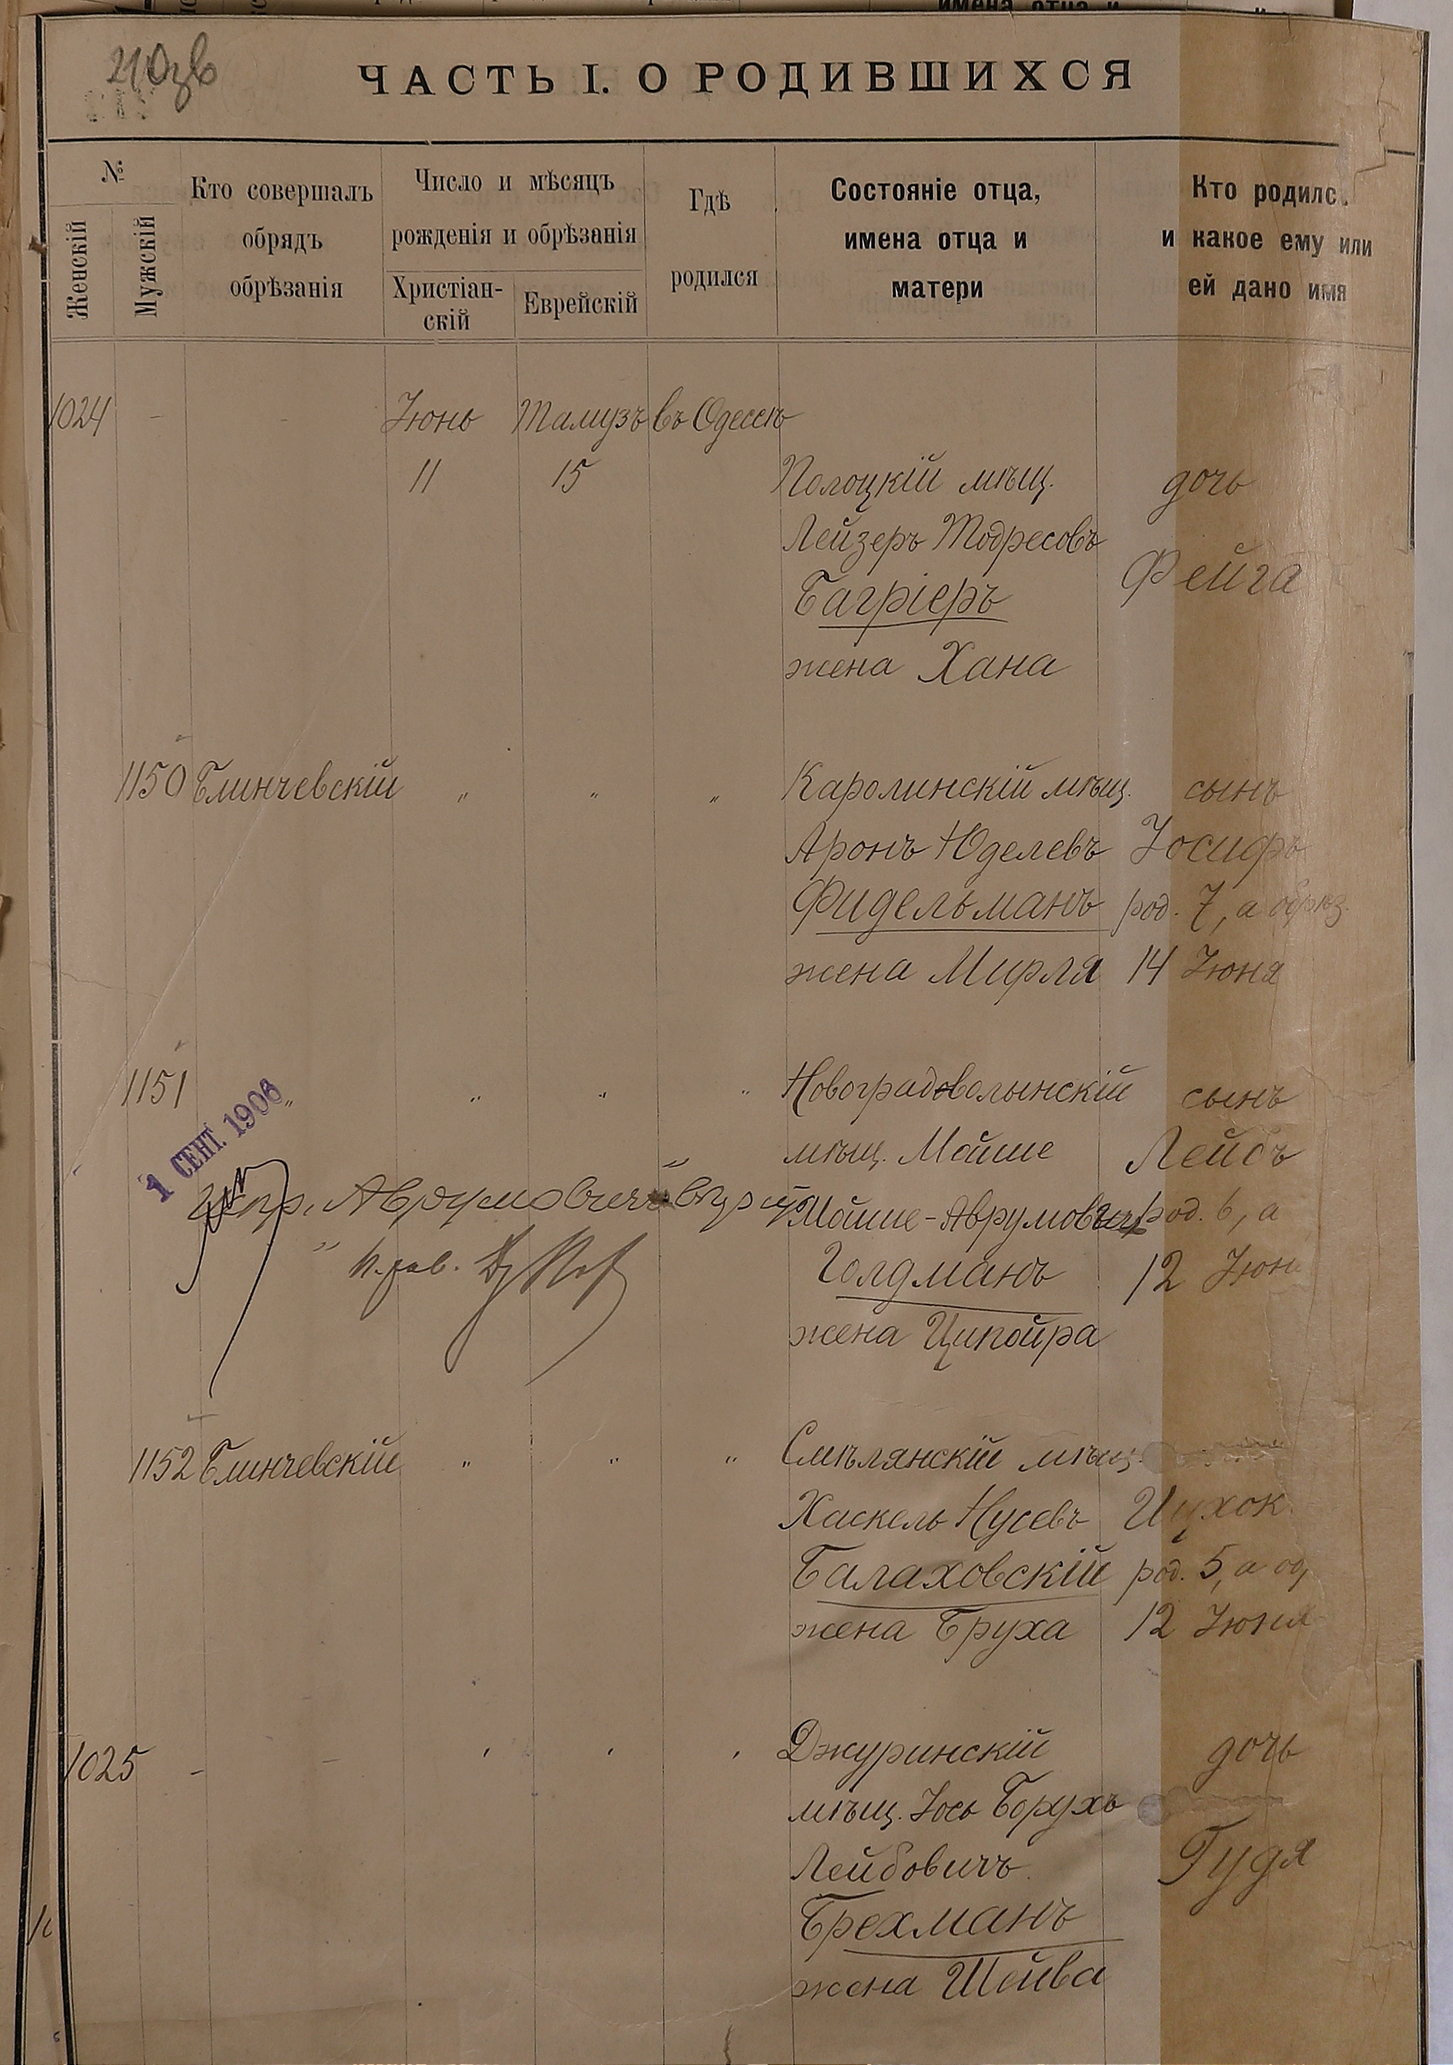 ЧАСТЬ I. О РОДИВШИХСЯ
№
Женскій
Мужскій
Кто совершалъ
обрядъ
обрѣзанія
Число и мѣсяцъ
рожденія и обрѣзанія
Христіан-
скій
Еврейскій
Гдѣ
родился
Состояніе отца,
имена отца и
матери
Кто родилс
и какое ему или
ей дано имя
1024 - - Іюнь Тамузъ въ Одессѣ
11 15 Полоцкій мѣщ. дочь
Лейзеръ Тодресовъ
Фейга
Багріеръ
жена Хана
1150 Блинчевскій " " " Каролинскій мѣщ. сынъ
Аронъ Юделевъ Іосифъ
Фидельманъ род. 7, а обрѣз.
жена Мирля 14 Іюня
1151 " " " " Новоградоволынскій сынъ
1 СЕНТ. 1906
мѣщ. Мойше Лейбъ
Испр. Аврумовичъ
Мойше-Аврумовичъ род. 6, а
Голдманъ 12 Іюн
жена Ципойра
1152 Блинчевскій " " " Смѣлянскій мѣщ.
Хаскель Нусевъ Ицхок
Балаховскій род. 5, а об
жена Бруха 12 Іюня
1025 - - " " " Джуринскій дочь
мѣщ. Іось Борухъ
Лейбовичъ Гудя
Брехманъ
жена Шейва